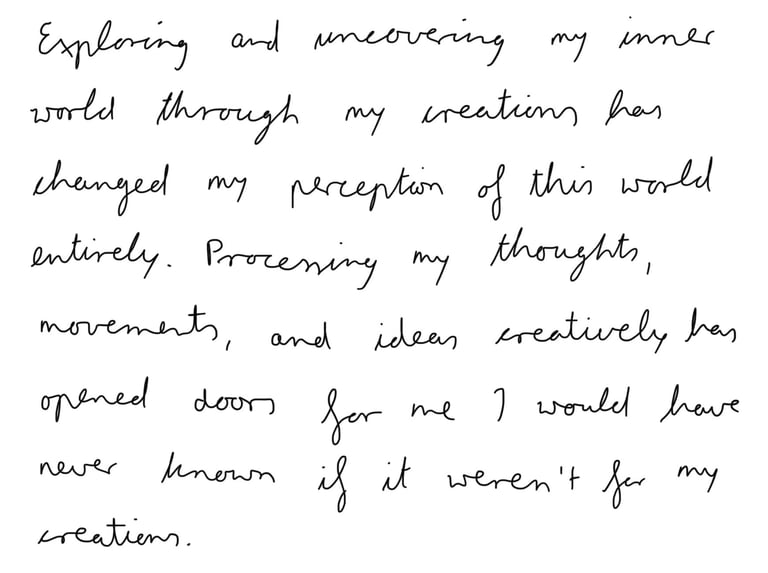 Exploring and uncovering my inner
world through my creations has
changed my perception of this world
entirely. Processing my thoughts,
movements, and ideas creatively has
opened doors for me I would have
never known if it weren't for my
creations.